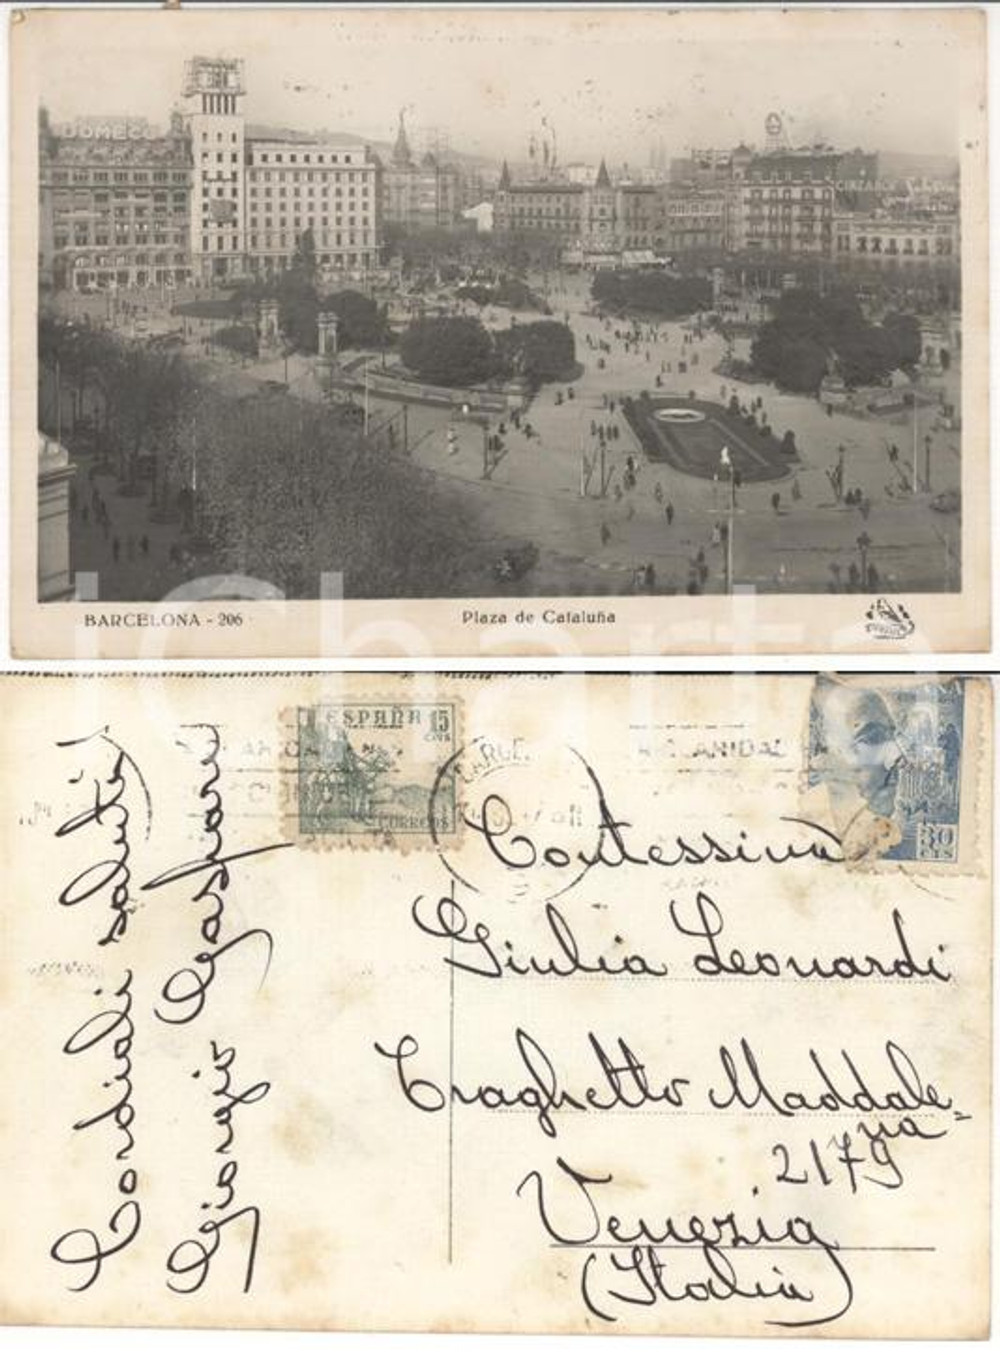 DOMECQ
CINZANO
BARCELONA - 206
Plaza de Cataluña
iCharta
ESPAÑA 15
CTS
CORREOS
BARCEL
30
CTS
Contessina
Giulia Leonardi
Traghetto Maddale=
na
2179
Venezia
(Italia)
Cordiali saluti
Giorgio Gaspari